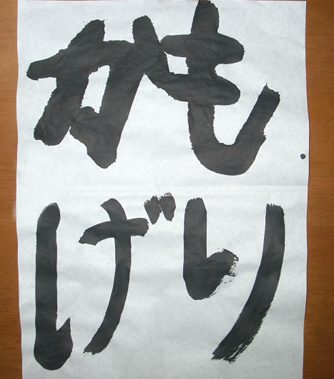 もり
かげ